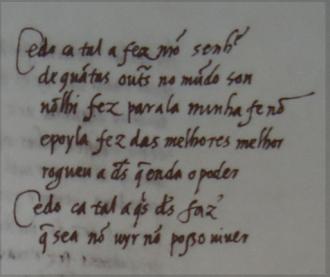 Cedo ca tal a fez nrõ senhor
de quãtas outs̃ no mũdo son
nõlhi fez parala minha fe nõ
epoyla fez das melhores melhor
rogueu a d̃s q̃enda o poder
Cedo ca tal a q̃s d̃s faz̃
q̃ sea nõ uyr nõ poßo uiuer